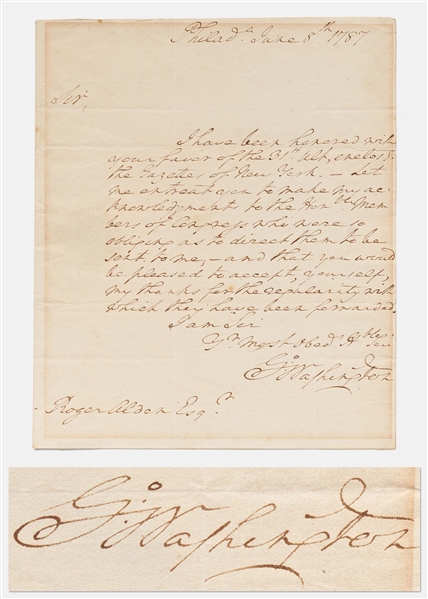 Philad.ᵃ June 8.th 1787.
Sir,
I have been honored with
your favor of the 31st Ult. enclosg.
the Gazettes of New York. – Let
me entreat you to make my ac-
knowledgments to the Honble. Mem-
bers of Congress who were so
obliging as to direct them to be
sent to me, – and that you would
be pleased to accept, yourself,
my thanks for the regularity with
which they have been forwarded.
I am Sir
Yr. Most Obedt. Hble Ser
Go: Washington
Roger Alden Esqr.
Go: Washington